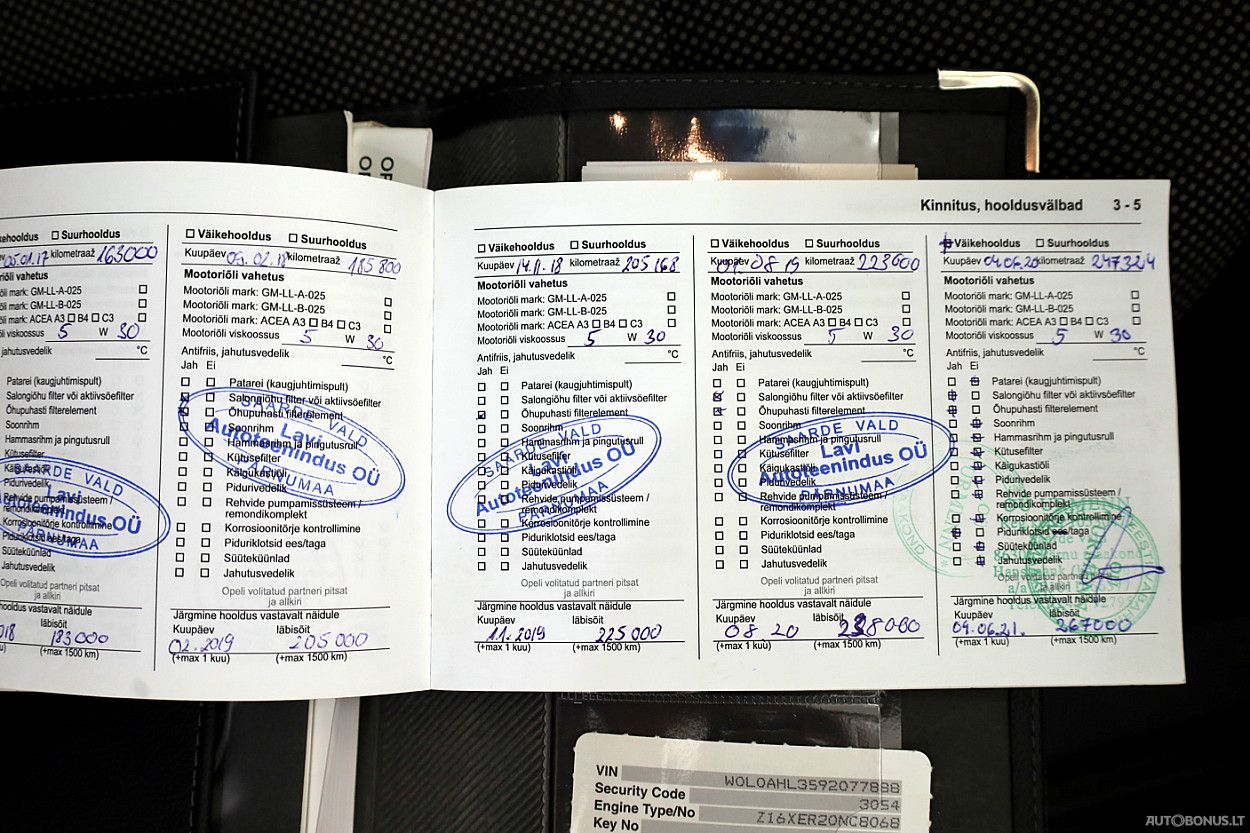 OPEL
Kinnitus, hooldusvälbad 3 - 5
kehooldus ☐ Suurhooldus
05.01.17 kilometraaž 163000
Mootoriõli vahetus
õli mark: GM-LL-A-025
õli mark: GM-LL-B-025
õli mark: ACEA A3 ☐ B4 ☐ C3
õli viskoossus 5 W 30
jahutusvedelik °C
Patarei (kaugjuhtimispult)
Salongiõhu filter või aktiivsöefilter
Õhupuhasti filterelement
Soonrihm
Hammasrihm ja pingutusrull
Kütusefilter
Käigukastiõli
Pidurivedelik
Rehvide pumpamissüsteem /
remondikomplekt
Korrosioonitõrje kontrollimine
Piduriklotsid ees/taga
Süüteküünlad
Jahutusvedelik
SAARDE VALD
Lavi
Autoteenindus OÜ
PÄRNUMAA
Opeli volitatud partneri pitsat
ja allkiri
hooldus vastavalt näidule
läbisõit
183000
(+max 1500 km)
☐ Väikehooldus ☐ Suurhooldus
Kuupäev 05.02.18 kilometraaž 185800
Mootoriõli vahetus
Mootoriõli mark: GM-LL-A-025
Mootoriõli mark: GM-LL-B-025
Mootoriõli mark: ACEA A3 ☐ B4 ☐ C3
Mootoriõli viskoossus 5 W 30
Antifriis, jahutusvedelik °C
Jah Ei
Patarei (kaugjuhtimispult)
Salongiõhu filter või aktiivsöefilter
Õhupuhasti filterelement
Soonrihm
Hammasrihm ja pingutusrull
Kütusefilter
Käigukastiõli
Pidurivedelik
Rehvide pumpamissüsteem /
remondikomplekt
Korrosioonitõrje kontrollimine
Piduriklotsid ees/taga
Süüteküünlad
Jahutusvedelik
SAARDE VALD
Lavi
Autoteenindus OÜ
PÄRNUMAA
Opeli volitatud partneri pitsat
ja allkiri
Järgmine hooldus vastavalt näidule
Kuupäev läbisõit
02.2019 205000
(+max 1 kuu) (+max 1500 km)
☐ Väikehooldus ☐ Suurhooldus
Kuupäev 14.11.18 kilometraaž 205168
Mootoriõli vahetus
Mootoriõli mark: GM-LL-A-025
Mootoriõli mark: GM-LL-B-025
Mootoriõli mark: ACEA A3 ☐ B4 ☐ C3
Mootoriõli viskoossus 5 W 30
Antifriis, jahutusvedelik °C
Jah Ei
Patarei (kaugjuhtimispult)
Salongiõhu filter või aktiivsöefilter
Õhupuhasti filterelement
Soonrihm
Hammasrihm ja pingutusrull
Kütusefilter
Käigukastiõli
Pidurivedelik
Rehvide pumpamissüsteem /
remondikomplekt
Korrosioonitõrje kontrollimine
Piduriklotsid ees/taga
Süüteküünlad
Jahutusvedelik
SAARDE VALD
Lavi
Autoteenindus OÜ
PÄRNUMAA
Opeli volitatud partneri pitsat
ja allkiri
Järgmine hooldus vastavalt näidule
Kuupäev läbisõit
11.2019 225000
(+max 1 kuu) (+max 1500 km)
☐ Väikehooldus ☐ Suurhooldus
Kuupäev 01.08.19 kilometraaž 223000
Mootoriõli vahetus
Mootoriõli mark: GM-LL-A-025
Mootoriõli mark: GM-LL-B-025
Mootoriõli mark: ACEA A3 ☐ B4 ☐ C3
Mootoriõli viskoossus 5 W 30
Antifriis, jahutusvedelik °C
Jah Ei
Patarei (kaugjuhtimispult)
Salongiõhu filter või aktiivsöefilter
Õhupuhasti filterelement
Soonrihm
Hammasrihm ja pingutusrull
Kütusefilter
Käigukastiõli
Pidurivedelik
Rehvide pumpamissüsteem /
remondikomplekt
Korrosioonitõrje kontrollimine
Piduriklotsid ees/taga
Süüteküünlad
Jahutusvedelik
SAARDE VALD
Lavi
Autoteenindus OÜ
PÄRNUMAA
Opeli volitatud partneri pitsat
ja allkiri
Järgmine hooldus vastavalt näidule
Kuupäev läbisõit
08 20 238000
(+max 1 kuu) (+max 1500 km)
Väikehooldus ☐ Suurhooldus
Kuupäev 04.06.20 kilometraaž 247324
Mootoriõli vahetus
Mootoriõli mark: GM-LL-A-025
Mootoriõli mark: GM-LL-B-025
Mootoriõli mark: ACEA A3 ☐ B4 ☐ C3
Mootoriõli viskoossus 5 W 30
Antifriis, jahutusvedelik °C
Jah Ei
Patarei (kaugjuhtimispult)
Salongiõhu filter või aktiivsöefilter
Õhupuhasti filterelement
Soonrihm
Hammasrihm ja pingutusrull
Kütusefilter
Käigukastiõli
Pidurivedelik
Rehvide pumpamissüsteem /
remondikomplekt
Korrosioonitõrje kontrollimine
Piduriklotsid ees/taga
Süüteküünlad
Jahutusvedelik
Opeli volitatud partneri pitsat
ja allkiri
Järgmine hooldus vastavalt näidule
Kuupäev läbisõit
04.06.21. 267000
(+max 1 kuu) (+max 1500 km)
VIN W0L0AHL3592077888
Security Code 3054
Engine Type/No Z16XER20NC8068
Key No
AUTOBONUS.LT